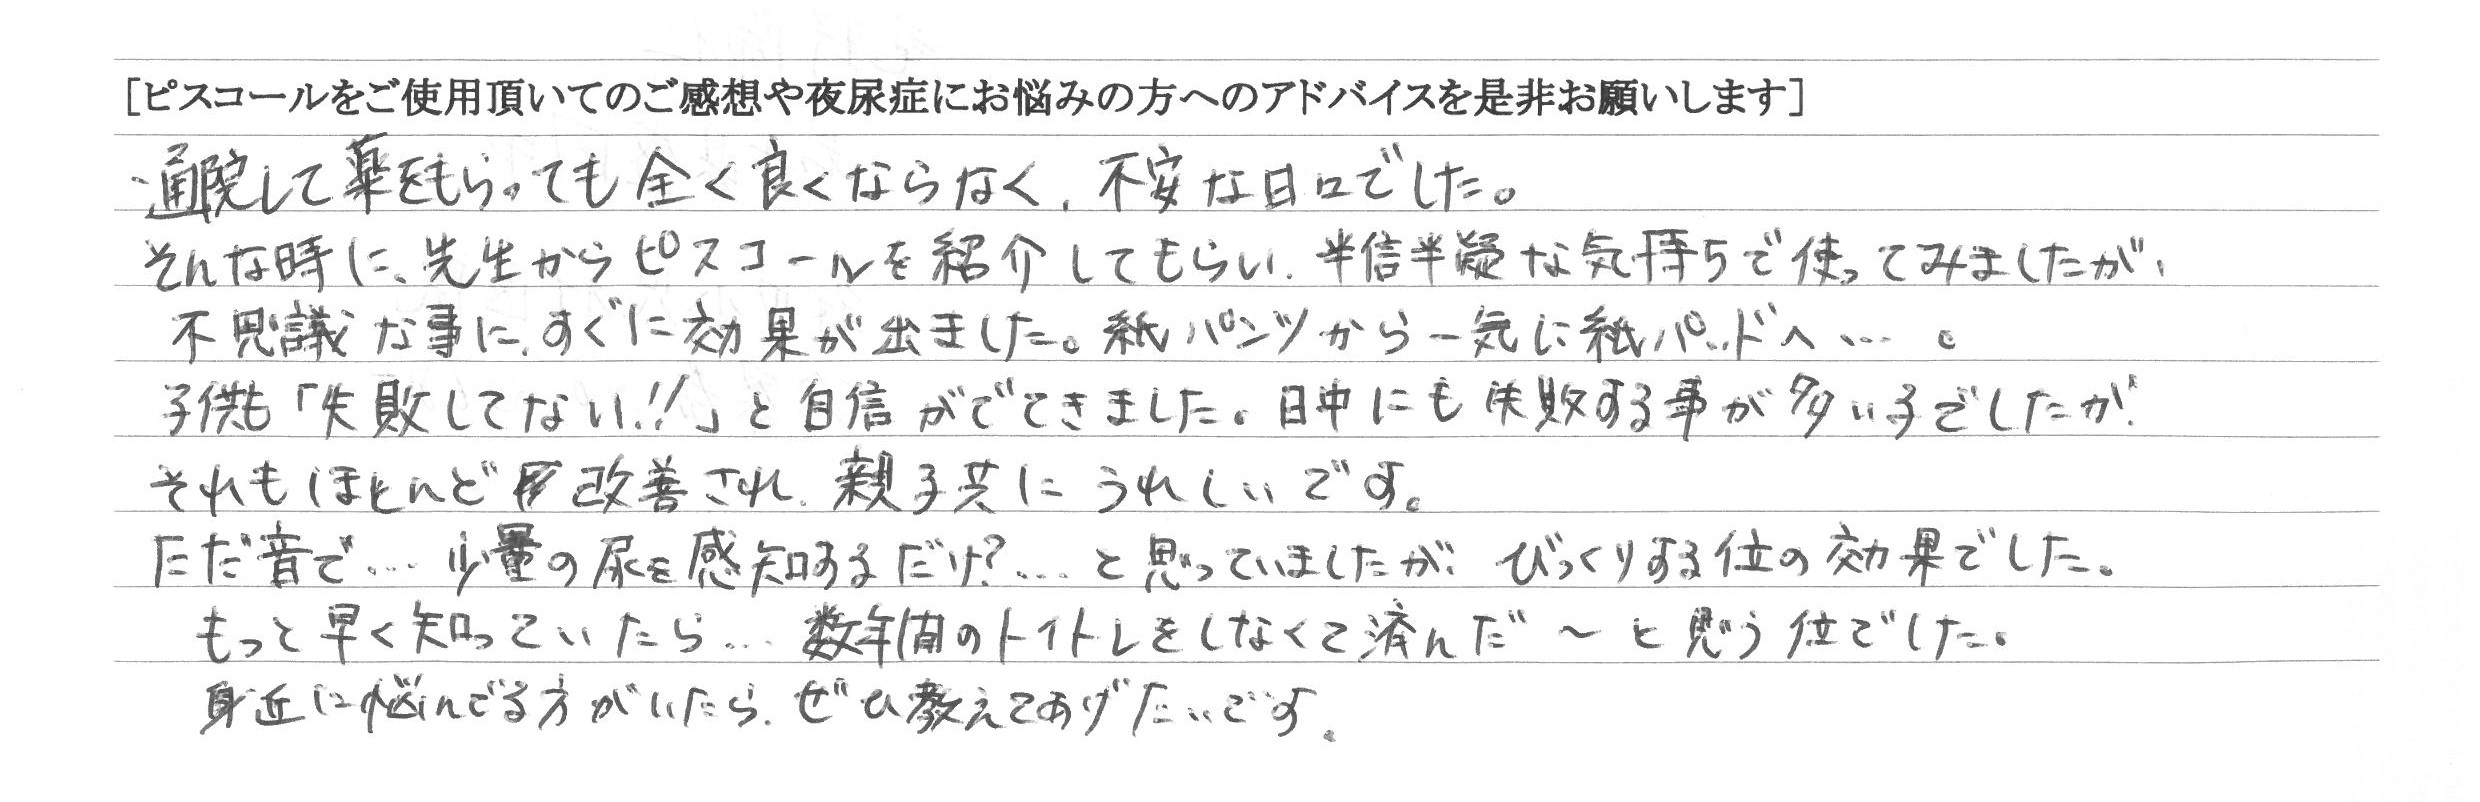 [ピスコールをご使用頂いてのご感想や夜尿症にお悩みの方へのアドバイスを是非お願いします]
通院して薬をもらっても全く良くならなく、不安な日々でした。
そんな時に、先生からピスコールを紹介してもらい、半信半疑な気持ちで使ってみましたが、
不思議な事に、すぐに効果が出ました。紙パンツから一気に紙パッドへ…。
子供も「失敗してない!!」と自信がでてきました。日中にも失敗する事が多い子でしたが、
それもほとんど改善され、親子共にうれしいです。
ただ音で…少量の尿を感知するだけ?…と思っていましたが、びっくりする位の効果でした。
もっと早く知っていたら…数年間のトイトレをしなくて済んだ～と思う位でした。
身近に悩んでる方がいたら、ぜひ教えてあげたいです。